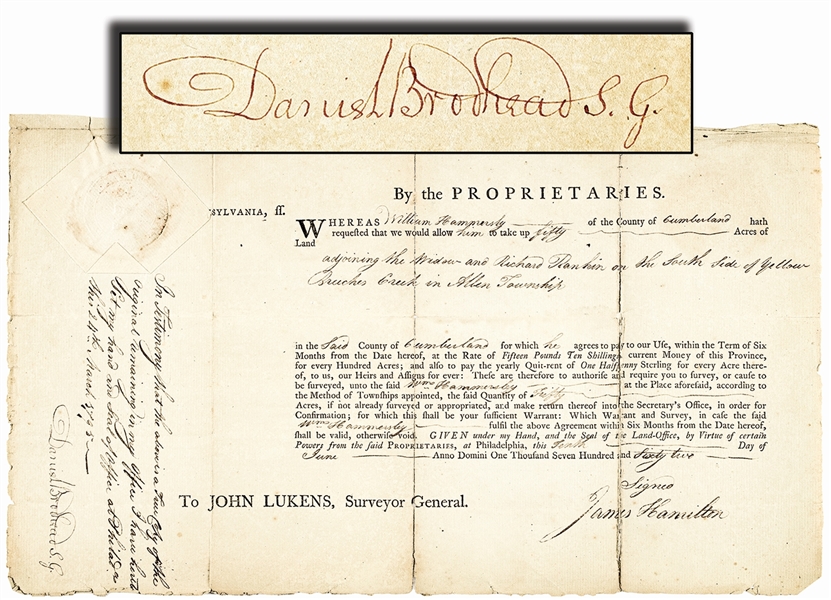 Daniel Brodhead S. G.
By the PROPRIETARIES.
SYLVANIA, ſſ.
WHEREAS William Hammersly of the County of Cumberland hath
requested that we would allow him to take up fifty Acres of
Land
adjoining the Widow and Richard Rankin on the South Side of Yellow
Breeches Creek in Allen Township
in the Said County of Cumberland for which he agrees to pay to our Uſe, within the Term of Six
Months from the Date hereof, at the Rate of Fifteen Pounds Ten Shillings current Money of this Province,
for every Hundred Acres; and also to pay the yearly Quit-rent of One Halfpenny Sterling for every Acre there-
of, to us, our Heirs and Aſſigns for ever: Theſe are therefore to authoriſe and require you to ſurvey, or cauſe to
be ſurveyed, unto the ſaid Wm. Hammersly at the Place aforeſaid, according to
the Method of Townſhips appointed, the ſaid Quantity of Fifty
Acres, if not already ſurveyed or appropriated, and make return thereof into the Secretary's Office, in order for
Confirmation; for which this ſhall be your ſufficient Warrant: Which Warrant and Survey, in caſe the ſaid
Wm. Hammersly fulfil the above Agreement within Six Months from the Date hereof,
ſhall be valid, otherwiſe void. GIVEN under my Hand, and the Seal of the Land-Office, by Virtue of certain
Powers from the ſaid PROPRIETARIES, at Philadelphia, this Tenth Day of
June Anno Domini One Thouſand Seven Hundred and Sixty two
Signed
James Hamilton
To JOHN LUKENS, Surveyor General.
In Testimony that the above is a True Copy of the
original remaining in my Office I have hereto
Set my hand and Seal of Office at Philada
this 24th March
Daniel Brodhead S. G.